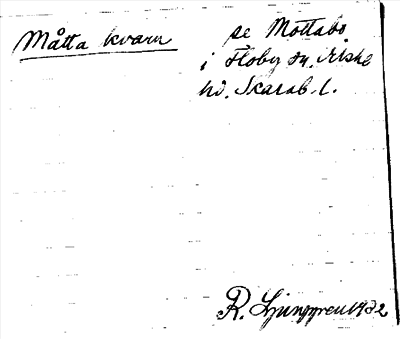 Måtta kvarn se Mottabo
i Floby sn. Vilske
hd. Skarab. l.
R. Ljunggren 1932